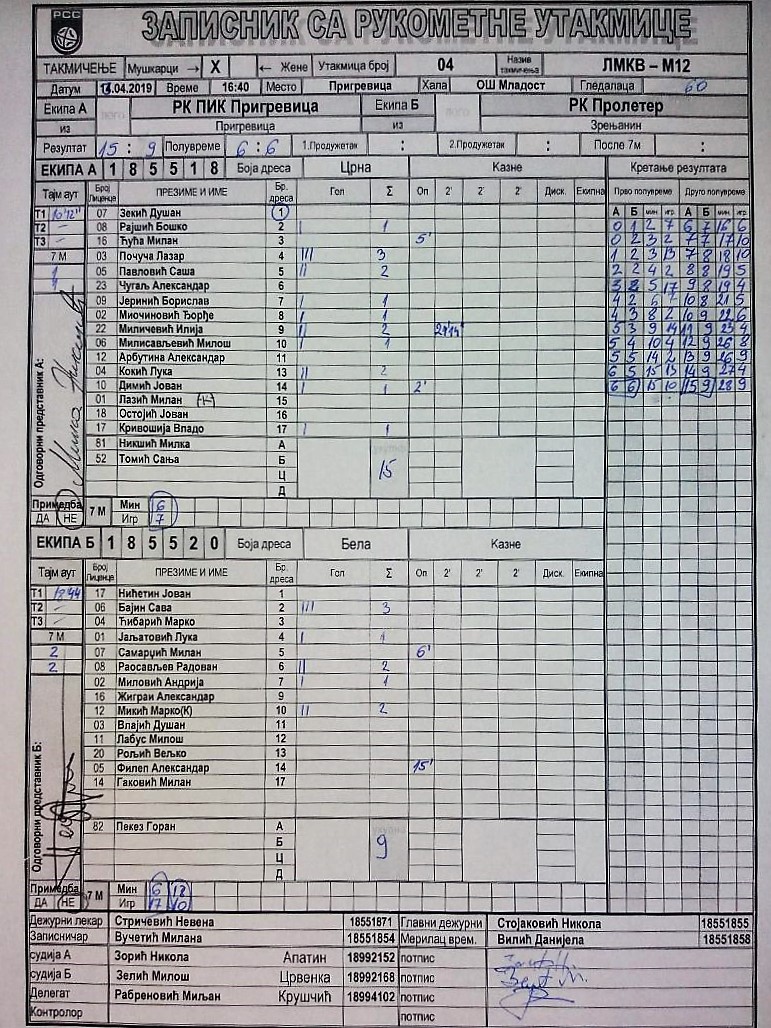 РСС
ЗАПИСНИК СА РУКОМЕТНЕ УТАКМИЦЕ
ТАКМИЧЕЊЕ Мушкарци → X ← Жене Утакмица број 04 Назив такмичења ЛМКВ – М12
Датум .04.2019 Време 16:40 Место Пригревица Хала ОШ Младост Гледалаца 60
Екипа А РК ПИК Пригревица Екипа Б РК Пролетер
из Пригревица из Зрењанин
Резултат 15 : 9 Полувреме 6 : 6 1.Продужетак : 2.Продужетак : После 7м :
ЕКИПА А 1 8 5 5 1 8 Боја дреса Црна Казне Кретање резултата
Тајм аут Број Лиценце ПРЕЗИМЕ И ИМЕ Бр. дреса Гол Σ Оп 2' 2' 2' Диск. Екипна Прво полувреме Друго полувреме
А Б мин игр А Б мин игр
Т1 10'12" 07 Зекић Душан 1 0 1 2 7 6 7 16 6
Т2 – 08 Рајшић Бошко 2 I 1 0 2 3 2 7 7 17 10
Т3 – 16 Ћућа Милан 3 5' 1 2 3 13 7 8 18 10
7 М 03 Почуча Лазар 4 III 3 2 2 4 2 8 8 19 5
1 05 Павловић Саша 5 II 2 3 2 5 17 9 8 19 4
1 23 Чугаљ Александар 6 4 2 6 7 10 8 21 5
09 Јеринић Борислав 7 I 1 4 3 8 2 10 9 22 6
02 Миочиновић Ђорђе 8 I 1 5 3 9 14 11 9 23 4
22 Миличевић Илија 9 II 2 5 4 10 4 12 9 26 8
06 Милисављевић Милош 10 I 1 5 5 14 2 13 9 26 9
12 Арбутина Александар 11 6 5 15 13 14 9 27 4
04 Кокић Лука 13 II 2 6 6 15 10 15 9 28 9
10 Димић Јован 14 I 1 2'
01 Лазић Милан (К) 15
18 Остојић Јован 16
17 Кривошија Владо 17 I 1
81 Никшић Милка А
52 Томић Сања Б укупно 15
Ц
Д
Одговорни представник А:
Примедба ДА НЕ 7 М Мин 6
Игр 7
ЕКИПА Б 1 8 5 5 2 0 Боја дреса Бела Казне
Тајм аут Број Лиценце ПРЕЗИМЕ И ИМЕ Бр. дреса Гол Σ Оп 2' 2' 2' Диск. Екипна
Т1 18'44 17 Нићетин Јован 1
Т2 – 06 Бајин Сава 2 III 3
Т3 – 04 Ћибарић Марко 3
7 М 01 Јаљатовић Лука 4 I 1
2 07 Самарџић Милан 5 6'
2 08 Раосављев Радован 6 II 2
02 Миловић Андрија 7 I 1
16 Жиграи Александар 9
12 Микић Марко(К) 10 II 2
03 Влајић Душан 11
11 Лабус Милош 12
20 Рољић Вељко 13
05 Филеп Александар 14 15'
14 Гаковић Милан 17
82 Пекез Горан А укупно
Б 9
Ц
Д
Одговорни представник Б:
Примедба ДА НЕ 7 М Мин 6 18
Игр 17 10
Дежурни лекар Стричевић Невена 18551871 Главни дежурни Стојаковић Никола 18551855
Записничар Вучетић Милана 18551854 Мерилац врем. Вилић Данијела 18551858
судија А Зорић Никола Апатин 18992152 потпис
судија Б Зелић Милош Црвенка 18992168 потпис
Делегат Рабреновић Миљан Крушчић 18994102 потпис
Контролор потпис